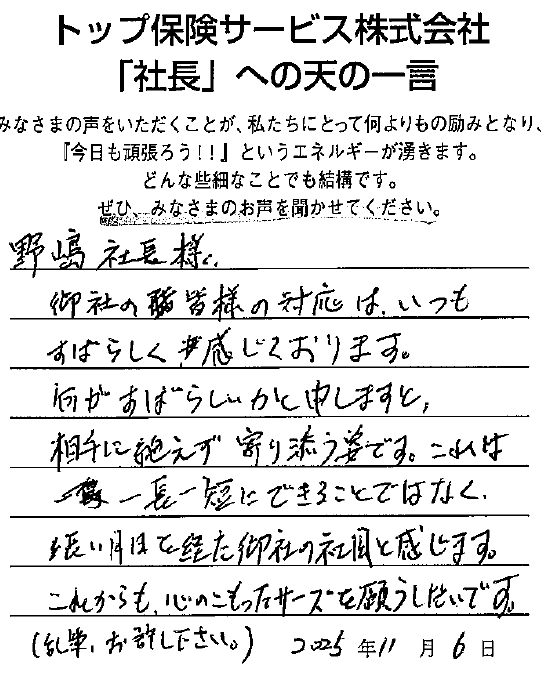 トップ保険サービス株式会社
「社長」への天の一言
みなさまの声をいただくことが、私たちにとって何よりもの励みとなり、
『今日も頑張ろう！！』というエネルギーが湧きます。
どんな些細なことでも結構です。
ぜひ、みなさまのお声を聞かせてください。
野嶋 社長 様
御社の皆様の対応は、いつも
すばらしく感じております。
何がすばらしいかと申しますと、
相手に絶えず寄り添う姿です。これは
一長一短にできることではなく、
長い月日を経た御社の社風と感じます。
これからも、心のこもったサービスを願うしだいです。
(乱筆、お許し下さい。) 2025 年 11 月 6 日